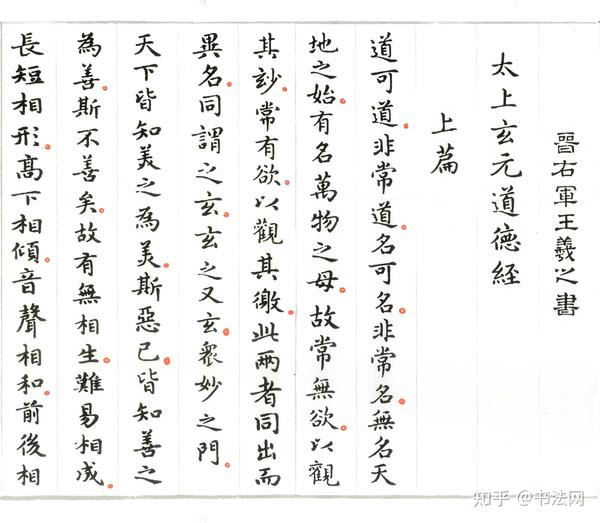 晉右軍王羲之書
太上玄元道德経
上篇
道可道非常道名可名非常名無名天
地之始有名萬物之母故常無欲以觀
其玅常有欲以觀其徼此兩者同出而
異名同謂之玄玄之又玄衆妙之門
天下皆知美之為美斯惡已皆知善之
為善斯不善矣故有無相生難易相成
長短相形髙下相傾音聲相和前後相
知乎 @书法网